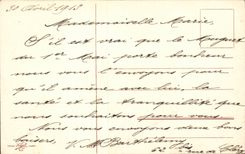 30 Avril 1913
Mademoiselle Marie,
S'il est vrai que le Muguet
du 1er Mai porte bonheur
nous vous l'envoyons pour
qu'il amène avec lui, la
santé et la tranquillité que
nous souhaitons pour vous
Nous vous envoyons deux bons
baisers. V. M. Barthélemy
62 rue de